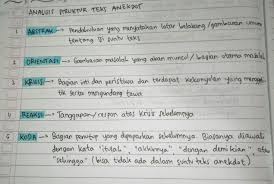 ANALISIS STRUKTUR TEKS ANEKDOT
1 ABSTRAK → Pendahuluan yang menyatakan latar belakang/gambaran umum
tentang isi suatu teks
2 ORIENTASI → Gambaran masalah yang akan muncul/bagian utama masalah
3 KRISIS → Bagian inti dari peristiwa dan terdapat kekonyolan yang
tik serta mengundang tawa
4 REAKSI → Tanggapan/respon atas krisis sebelumnya
5 KODA → Bagian penutup yang dipaparkan sebelumnya. Biasanya diawali
dengan kata "itulah", "akhirnya", "dengan demikian" atau
"sehingga" (bisa tidak ada dalam suatu teks anekdot).